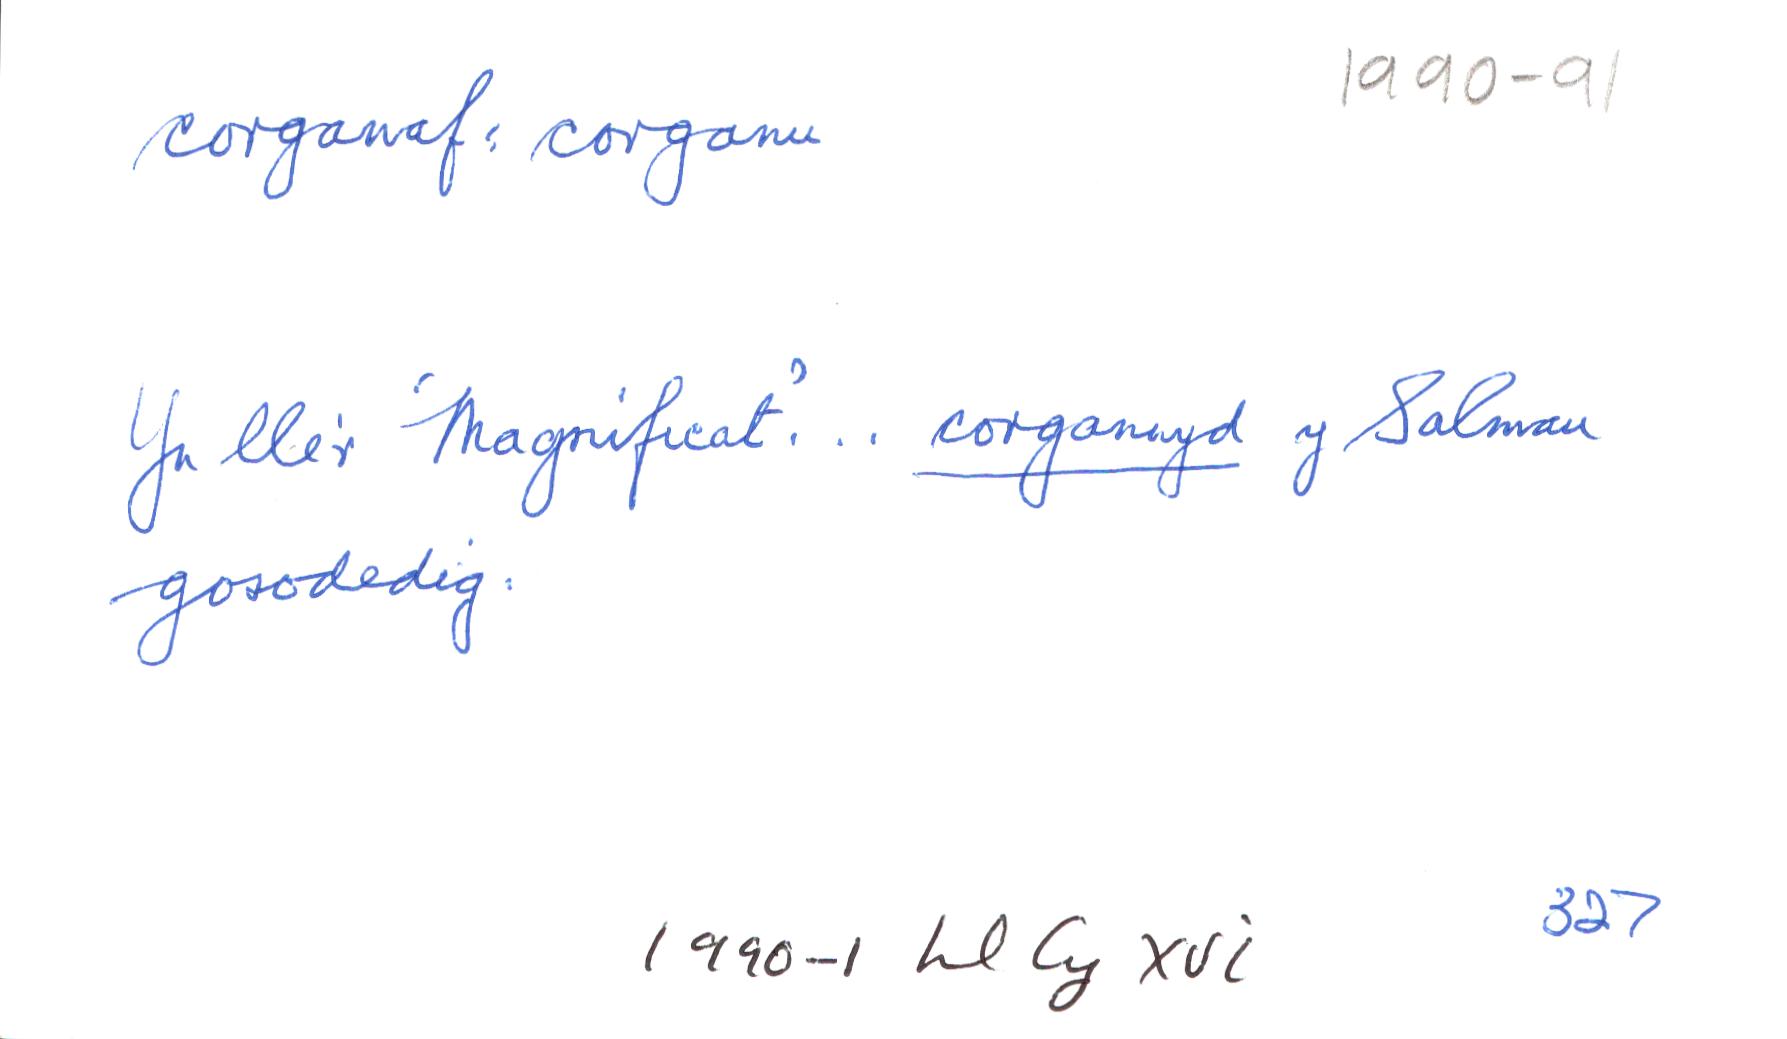 1990-91
corganaf: corganu
Yn lle'r 'Magnificat'... corganwyd y Salmau
gosodedig.
327
1990-1 Ll Cy xvi